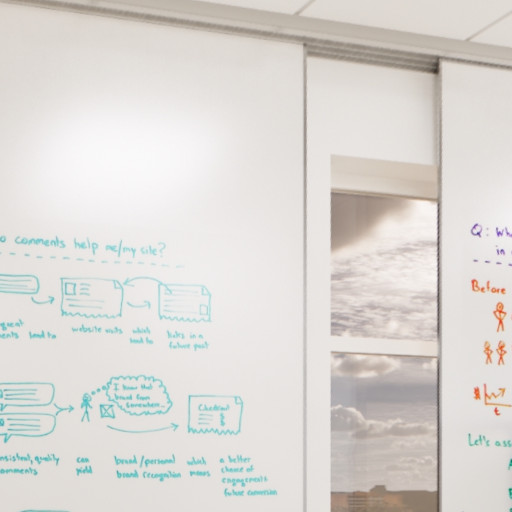 o comments help me/my site?
lead to
website visits
which
lead to
links in a
future post
I know that
brand from
somewhere...
Checkout
$
consistent, quality
comments
can
yield
brand/personal
brand recognition
which
means
a better
chance of
engagement &
future conversion
Q: Wh
in
Before
$
t
Let's ass